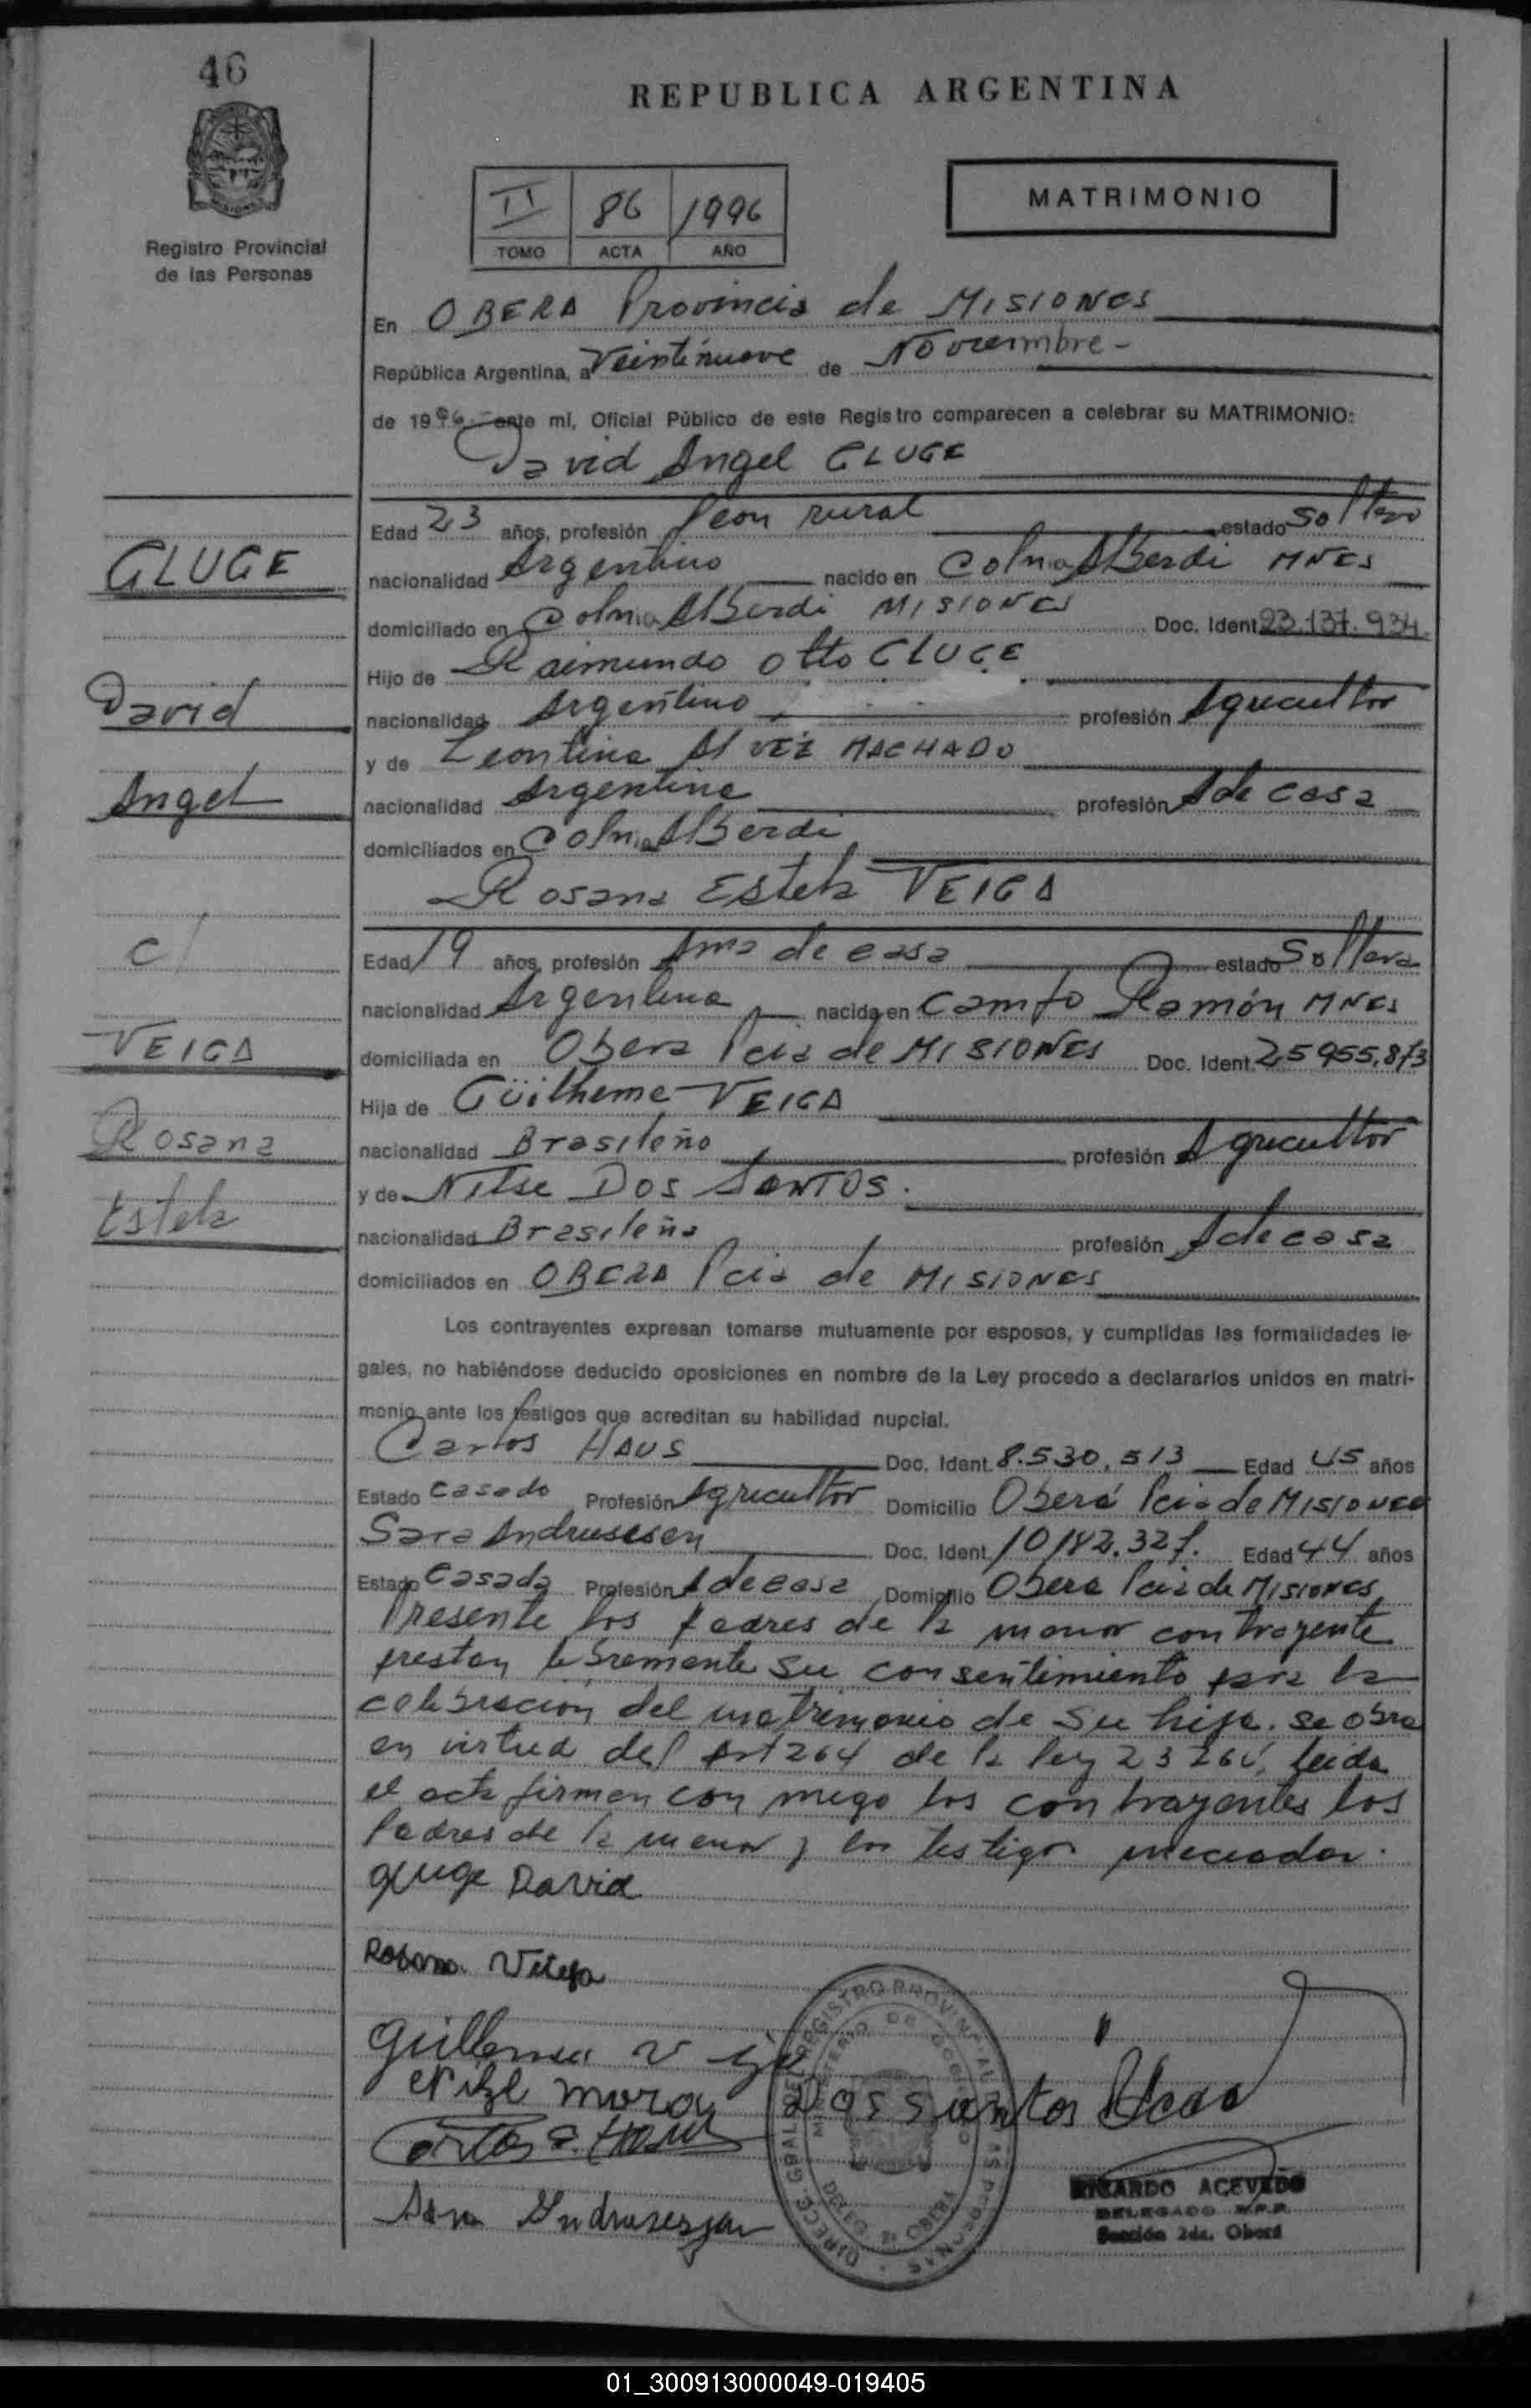 46
REPUBLICA ARGENTINA
Registro Provincial
de las Personas
II 86 1996
TOMO ACTA AÑO
MATRIMONIO
En OBERA Provincia de MISIONES
República Argentina, a Veintinueve de Noviembre -
de 1996 ante mi, Oficial Público de este Registro comparecen a celebrar su MATRIMONIO:
David Angel GLUGE
Edad 23 años, profesión Peon rural estado Soltero
GLUGE
nacionalidad Argentino nacido en Colnia Alberdi MNES
domiciliado en Colnia Alberdi MISIONES Doc. Ident. 23.137.934.
Hijo de Raimundo Otto GLUGE
David
nacionalidad Argentino profesión Agricultor
y de Leontina Alvez MACHADO
Angel
nacionalidad Argentina profesión A de casa
domiciliados en Colnia Alberdi
Rosana Estela VEIGA
c/
Edad 19 años, profesión Ama de casa estado Soltera
nacionalidad Argentina nacida en Campo Ramón MNES
VEIGA
domiciliada en Obera Pcia de MISIONES Doc. Ident. 25955.873
Hija de Güilheme VEIGA
Rosana
nacionalidad Brasileño profesión Agricultor
y de Nilse DOS SANTOS.
Estela
nacionalidad Brasileña profesión A de casa
domiciliados en OBERA Pcia de MISIONES
Los contrayentes expresan tomarse mutuamente por esposos, y cumplidas las formalidades le-
gales, no habiéndose deducido oposiciones en nombre de la Ley procedo a declararlos unidos en matri-
monio ante los testigos que acreditan su habilidad nupcial.
Carlos HAUS Doc. Ident. 8.530.513 Edad 45 años
Estado Casado Profesión Agricultor Domicilio Oberá Pcia de MISIONES
Sara Andrusesen Doc. Ident. 10182.327. Edad 44 años
Estado Casada Profesión A de casa Domicilio Obera Pcia de MISIONES
Presente los padres de la menor contrayente
prestan libremente su consentimiento para la
celebración del matrimonio de su hija. se obra
en virtud del Art 264 de la ley 23264, leida
el acta firman con migo los contrayentes los
Padres de la menor y los testigos
gluge David
Rosana Veiga
Guillerme
Dos Santos
Carlos
RICARDO ACEVEDO
DELEGADO R.P.P.
Sección 2da. Oberá
DIRECC. GRAL. DEL REGISTRO PROVINCIAL DE LAS PERSONAS
MINISTERIO DE GOBIERNO
DELEG. 2ª OBERA
01_300913000049-019405